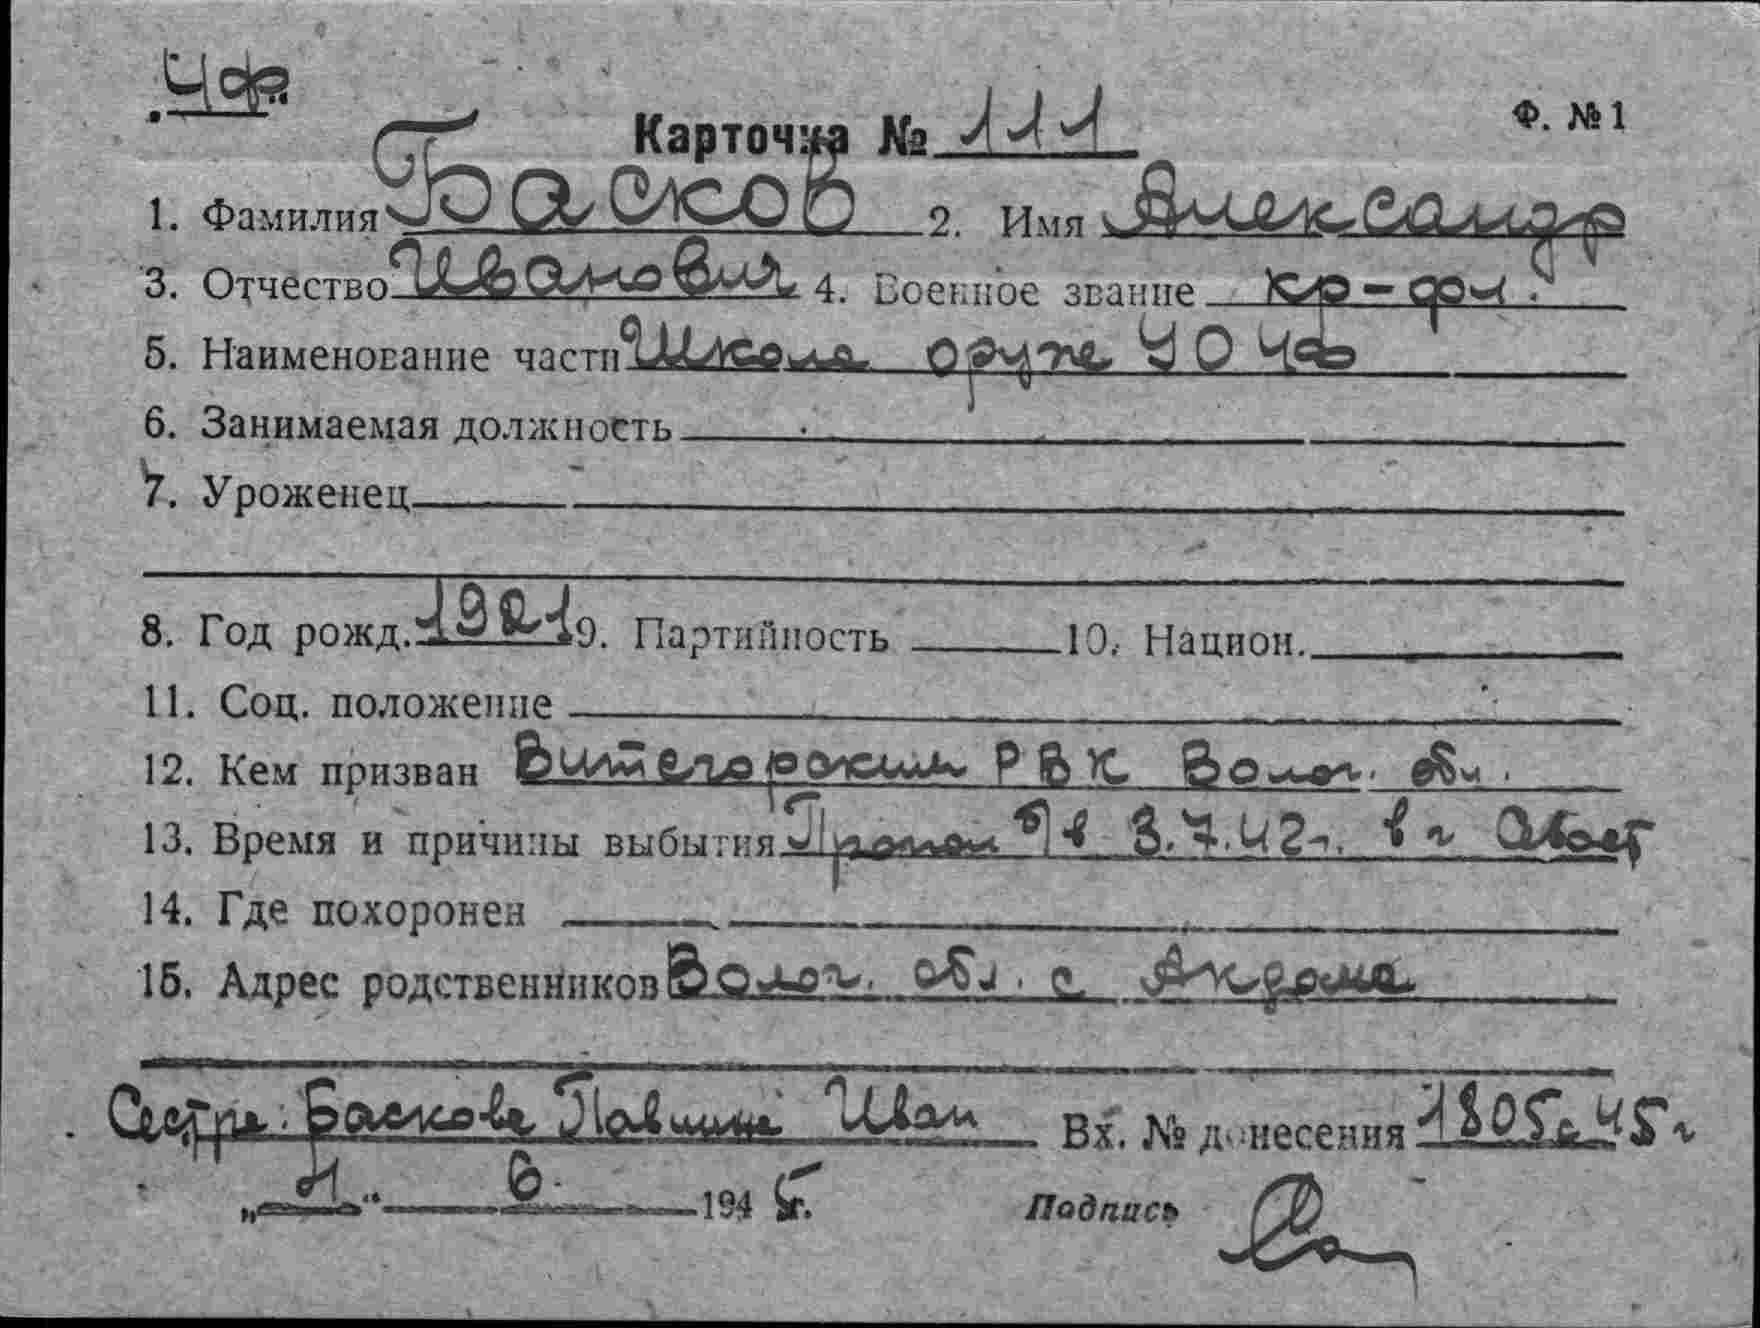 ЧФ
Карточка № 111 Ф. № 1
1. Фамилия Басков 2. Имя Александр
3. Отчество Иванович 4. Военное звание кр-фл.
5. Наименование части Школа оруж УО ЧФ
6. Занимаемая должность
7. Уроженец
8. Год рожд. 1921 9. Партийность 10. Национ.
11. Соц. положение
12. Кем призван Витегорским РВК Волог. обл.
13. Время и причины выбытия Пропал б/в 3.7.42г. в г Севаст
14. Где похоронен
15. Адрес родственников Волог. обл. с Андома
Сестре. Баскова Павлина Иван Вх. № донесения 1805с 45 г
" " 6. 1945 г. Подпись